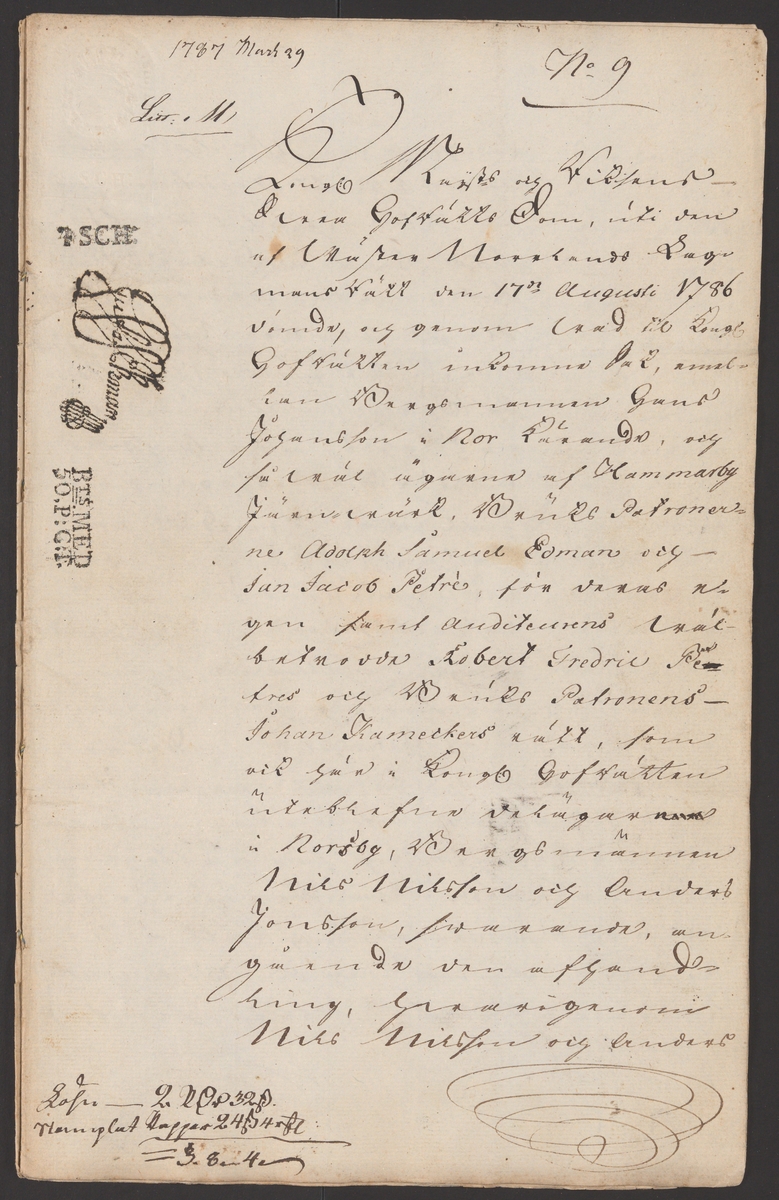 1787 Mart 29
No 9
Litt: M
Kongl Maijsts och Riksens
Svea Hofrätts Dom, uti den
af Wäster Norrlands Lag
mans Rätt den 17de Augusti 1786
dömde, och genom wad til Kongl
Hofrätten inkomne Sak, emel-
lan Bergsmannen Hans
Johansson i Nor Kärande, och
så wäl ägarne af Hammarby
Järnwärk, Bruks Patroner-
ne Adolph Samuel Edman och
Jan Jacob Petré, för deras e-
gen samt Auditeurens wäl-
betrodde Robert Fredric Pe-
tres och Bruks Patronens
Johan Kameckers rätt, som
ock här i Kongl Hofrätten
uteblefne delägar
i Norsby, Bergsmännen
Nils Nilsson och Anders
Jonsson, swarande, an-
gående den afhand-
ling, hwarigenom
Nils Nilsson och Anders
SCH
BTS MED
50. P: C:T.
Lösn — 2 Rd 32 s.
Stemplat Papper 24 s 4
3. 8. 4